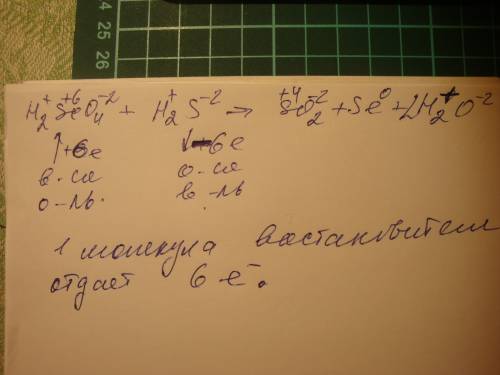 24 25 26
H₂⁺Se⁺⁶O₄⁻² + H₂⁺S⁻² → S⁺⁴O₂⁻² + Se⁰ + 2H₂⁺O⁻²
↑+6e ↓+6e
в-ся о-ся
о-ль. в-ль
1 молекула востановителя
отдает 6 e⁻.